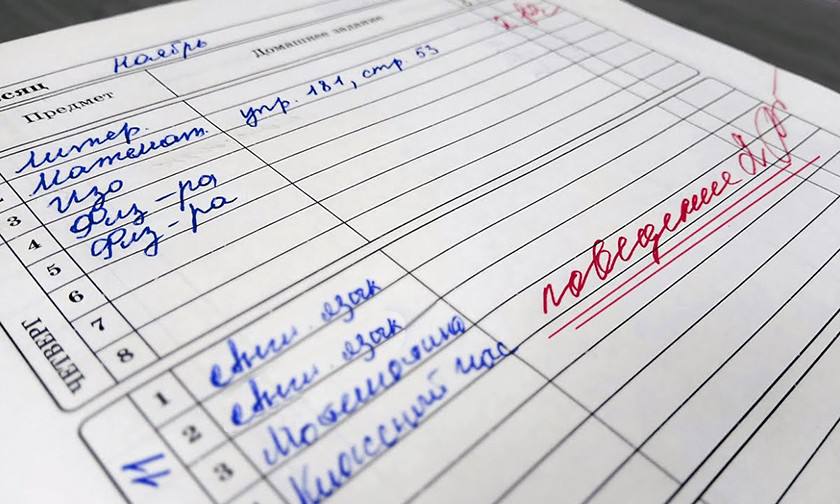 есяц Ноябрь
Предмет Домашнее задание
литер.
2 Математ. упр. 181, стр. 53
3 Изо
4 Физ-ра
5 Физ-ра
6
7
8
ЧЕТВЕРГ
поведение 2
1 Англ. язык
2 Англ. язык
3 Математика
Классный час
11